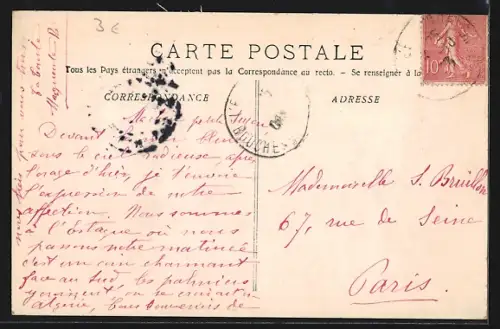 3€
CARTE POSTALE
Tous les Pays étrangers n'acceptent pas la Correspondance au recto. — Se renseigner à la
CORRESPONDANCE
ADRESSE
Ma petite
Devant la mer bleue
sous le ciel radieuse après
l'orage d'hier, je t'envoie
l'expression de notre
affection. Nous sommes
à l'Estaque où nous
passons notre matinée
c'est un coin charmant
face au sud, les palmiers
y on se croirait
algérie, bons souvenirs de
nous tous pour vous tous
Mademoiselle S. Bruillon
67, rue de Seine
Paris.
BOUCHES
10